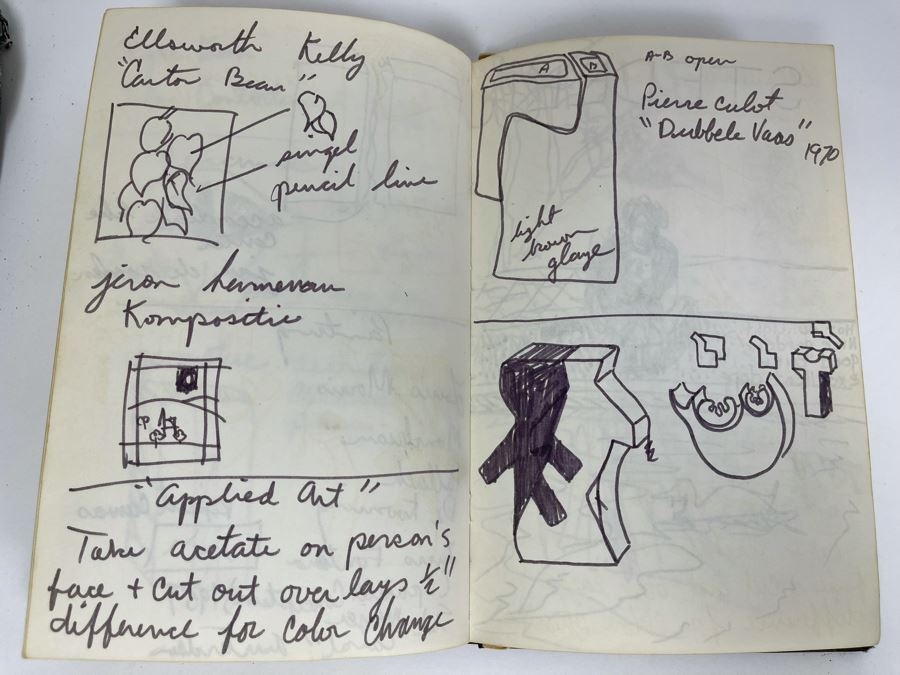 Ellsworth Kelly
"Cantor Bean"
singel
pencil line
jeron henneman
Kompositie
"Applied Art"
Take acetate on person's
face + cut out over lays ½"
difference for color change
A-B open
A B
Pierre Culot
"Dubbele Vaas"
1970
light
brown
glaze